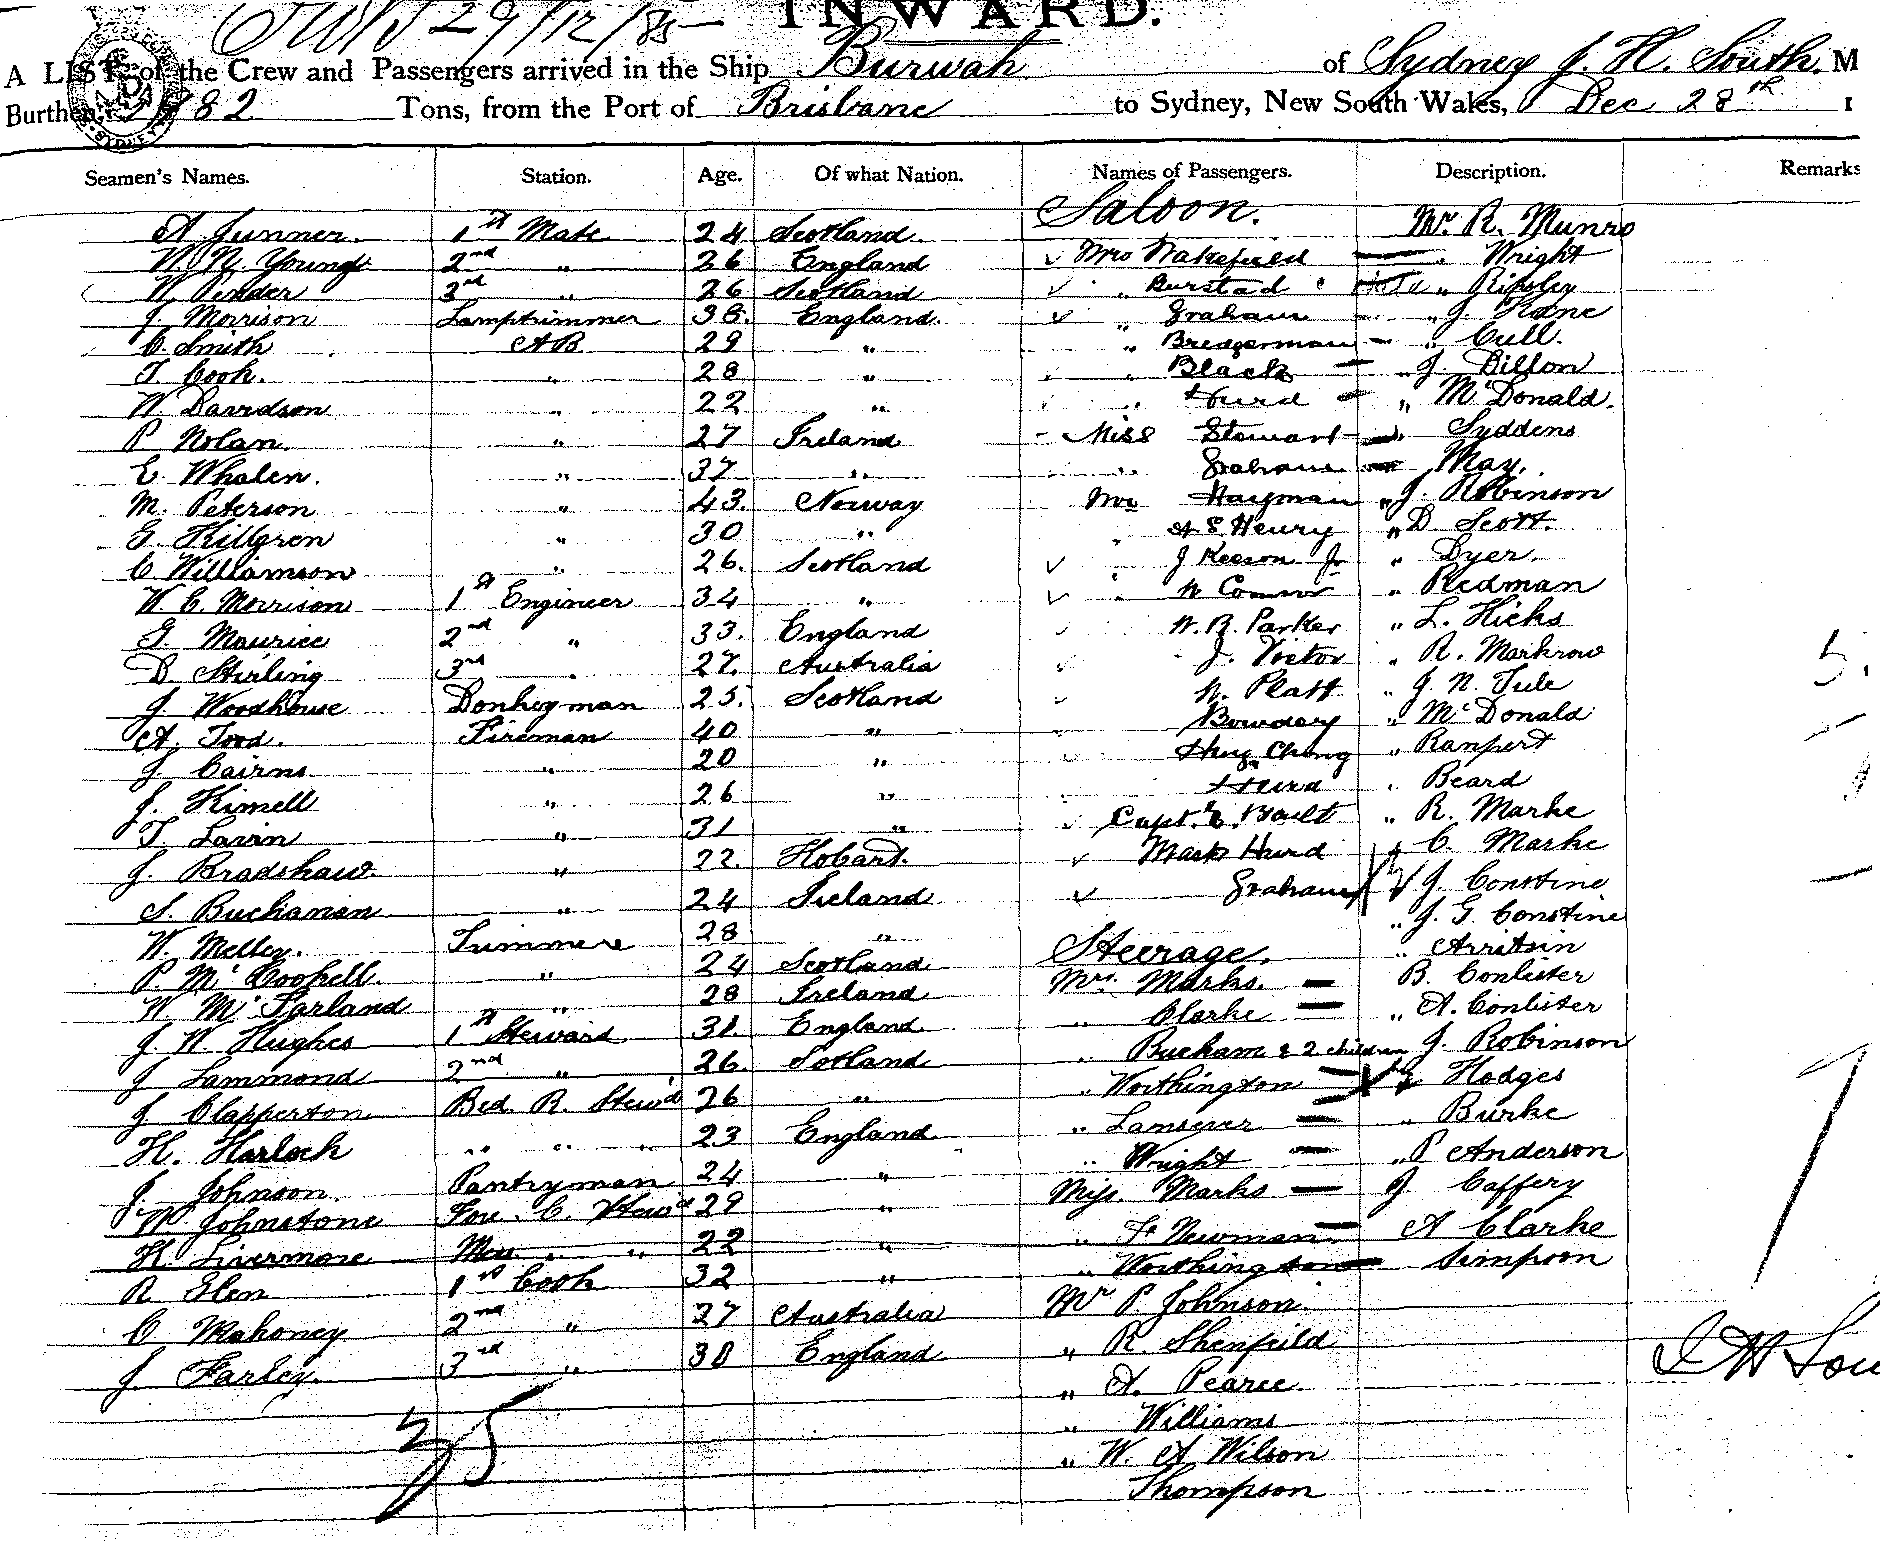 29/12/85
INWARD.
A LIST of the Crew and Passengers arrived in the Ship Burwah of Sydney J. H. South. M
Burthen, 482 Tons, from the Port of Brisbane to Sydney, New South Wales, Dec 28th
Seamen's Names. Station. Age. Of what Nation. Names of Passengers. Description. Remarks
Saloon.
A Junner. 1st Mate 24 Scotland. Mr. R. Munro
W. N. Young 2nd " 26 England Mrs Wakefield " Wright
W Pender 3rd " 26 Scotland " Burstad " Ripsley
J. Morrison Lamptrimmer 38. England. " Graham " J. Kane
C. Smith AB 29 " " Bredgerman " Cull.
T. Cook. " 28 " " Black " J. Dillon
W. Davidson " 22 " " Hurd " McDonald.
P Nolan. " 27 Ireland Miss Stewart " Syddens
E. Whalen. " 37 " " Graham May.
M. Peterson " 43. Norway Mr Hayman " J. Robinson
G. Killgren " 30 " " A S Henry " D Scott.
C Williamson " 26. Scotland J Keeson Jr " Dyer.
W. C. Morrison 1st Engineer 34 " " W Connor " Redman
G Maurice 2nd " 33. England W. B. Parker " L. Hicks
D. Stirling 3rd " 27. Australia J. Victor " R. Markrow
J Woodhouse Donkeyman 25. Scotland W. Platt " J. N. Tule
A. Tood. Fireman 40 " Bowdery " McDonald
J Cairns " 20 " Hug Chong " Ranpert
J. Kimell " 26 " Hurd " Beard
T. Lavin " 31 " Capt. C. Boult " R. Marke
J. Bradshaw " 22. Hobart. Mast Hurd " C. Marke
S. Buchanan " 24 Ireland Graham J. Constine
" J. G. Constine
W. Melley. Trimmer 28 " Steerage. " Arritsin
P. McCookell. " 24 Scotland Mrs. Marks. B. Conlister
W McFarland " 28 Ireland " Clarke " A. Conlister
J. W Hughes 1st Steward 31 England " Bucham & 2 children J. Robinson
J Lammond 2nd " 26. Scotland " Worthington " Hodges
J Clapperton Bed R. Stewd 26 " " Lamserer " Burke
H. Harlock " " " 23 England " Wright " P Anderson
J. Johnson. Pantryman 24 " Miss. Marks J Caffery
W. Johnstone Fore. C. Stewd 29 " " F Newman A Clarke
H. Livermore Mess " " 22 " " Worthington Simpson
R Glen 1st Cook 32 " Mr P. Johnson.
C Mahoney 2nd " 27 Australia " R. Shenfeild
J. Farley. 3rd " 30 England " A. Pearce.
35 " Williams
" W. A Wilson
Thompson
J H Sou